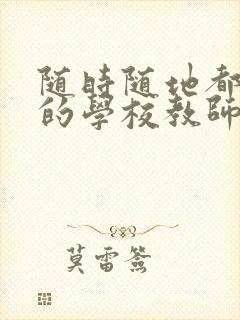 随時随地都
的學校教師
莫雷簽